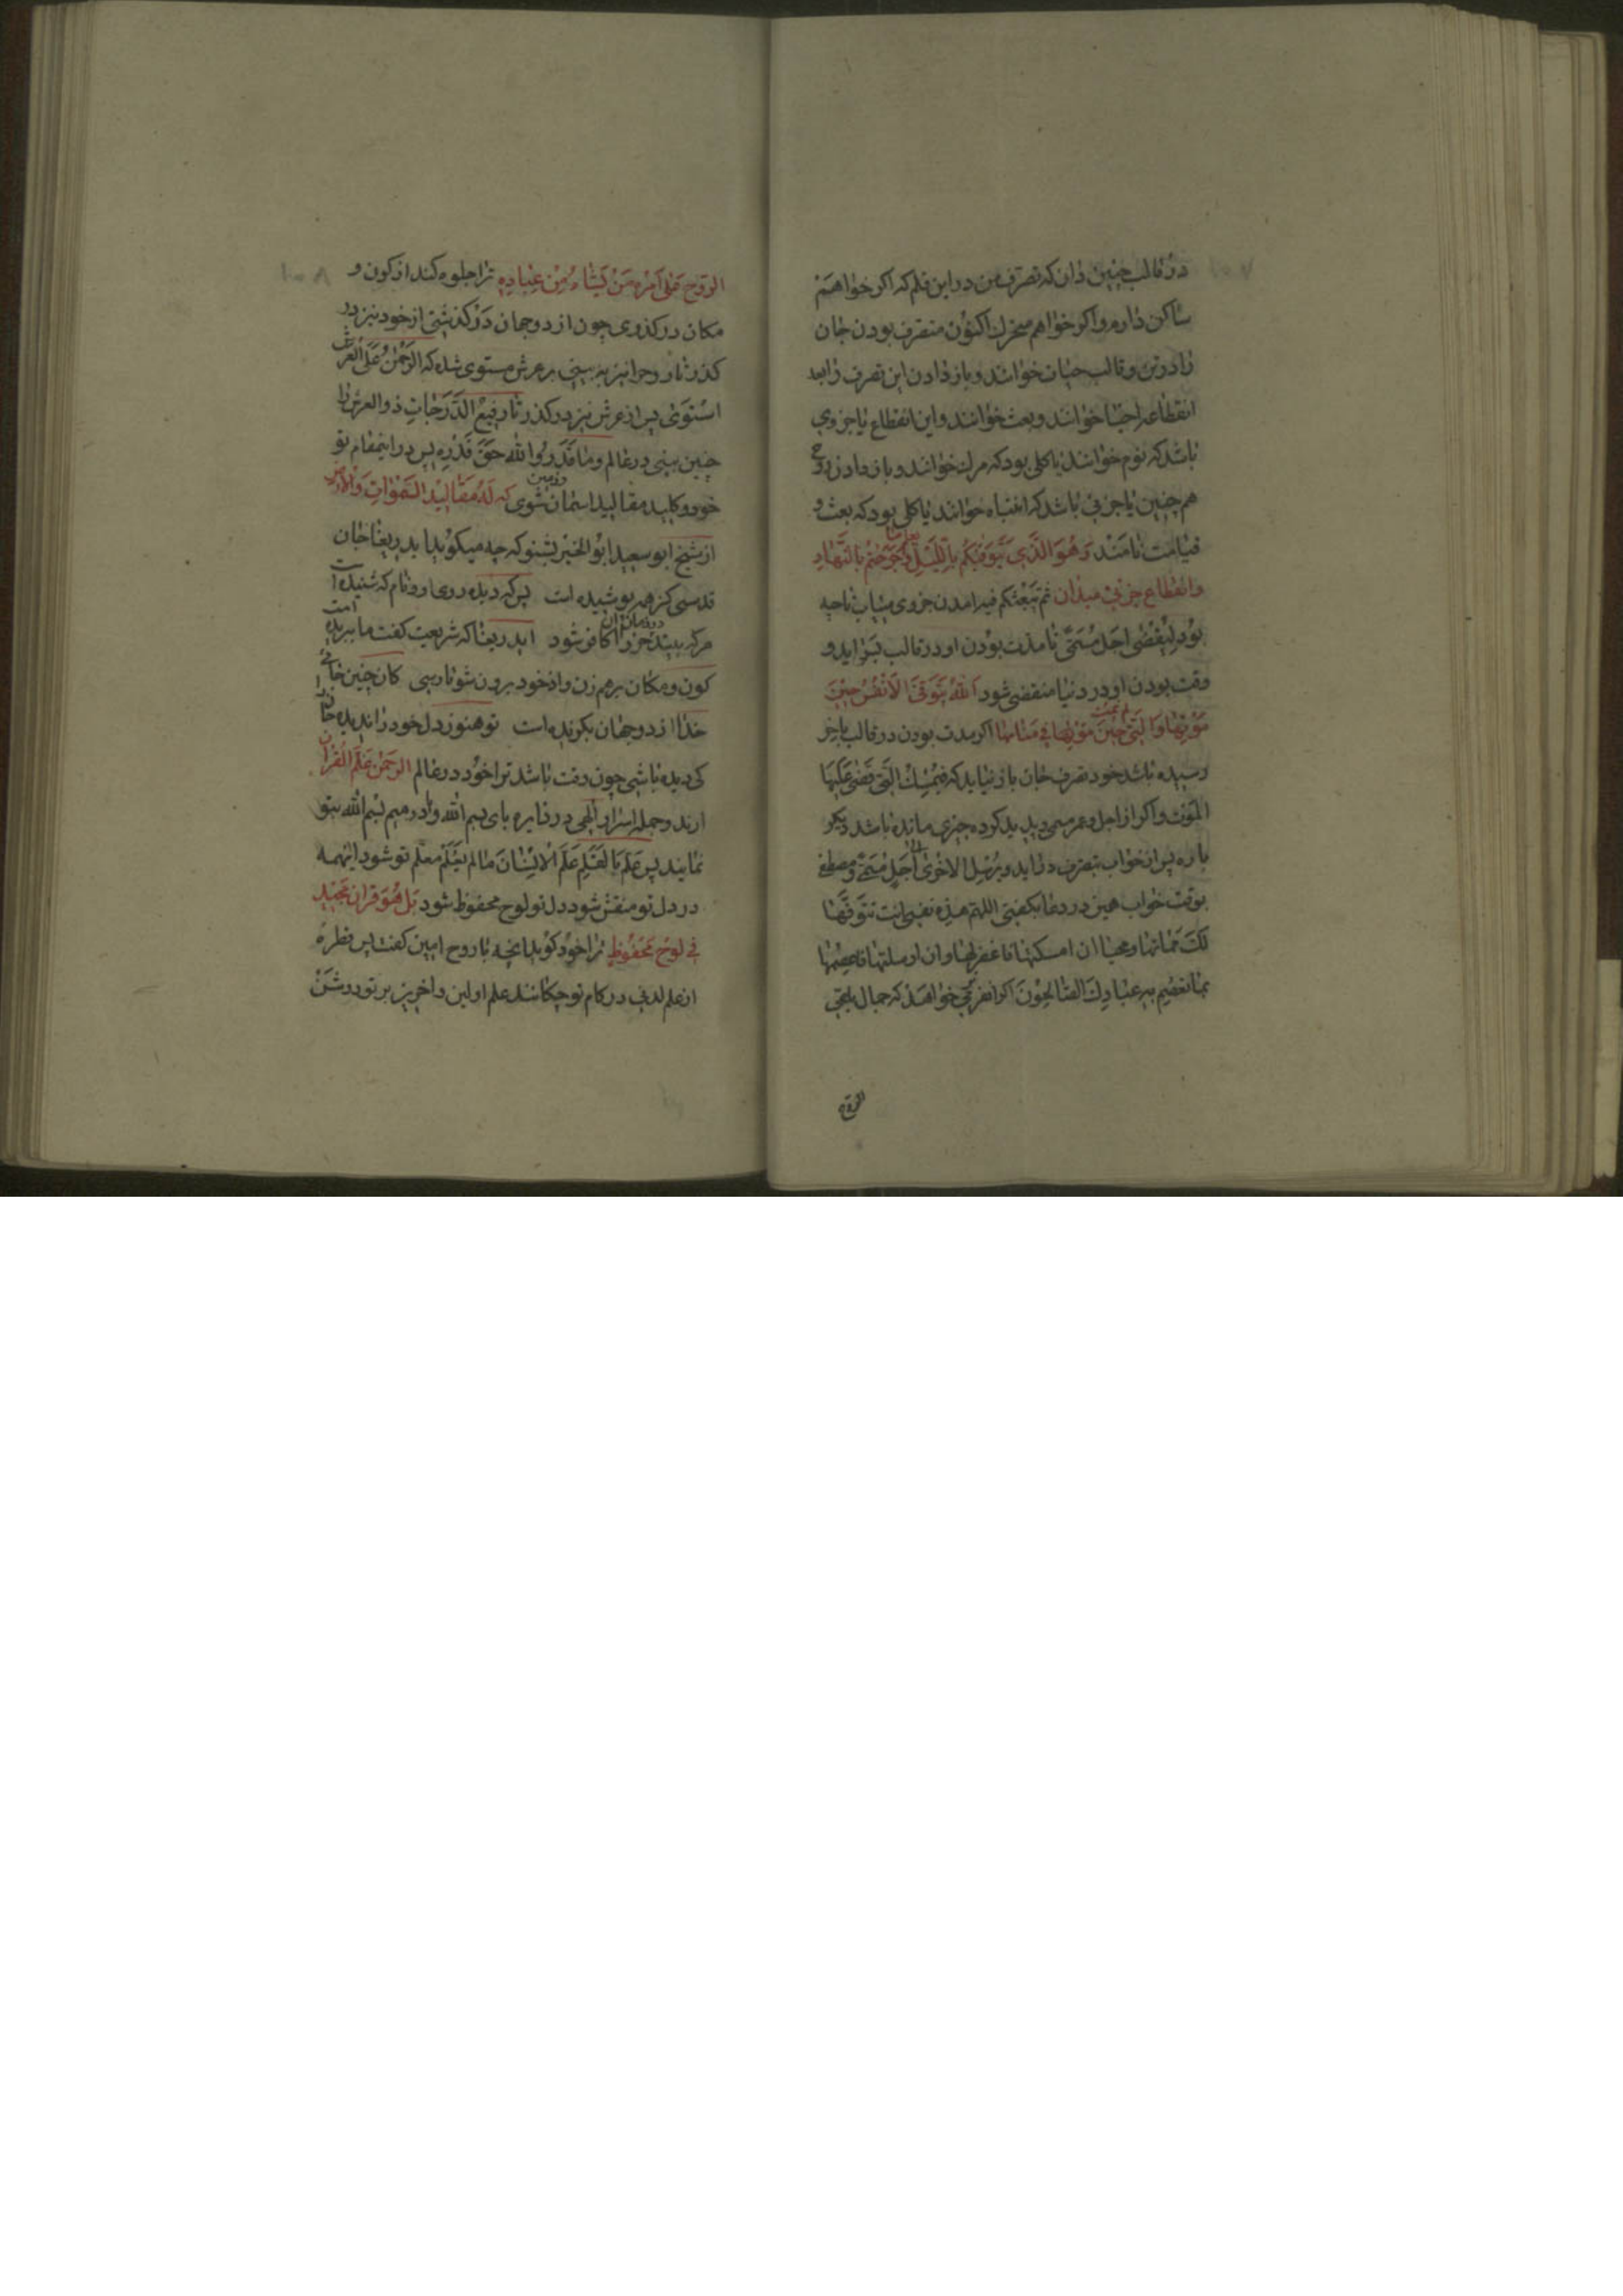 ۱۰۷
در قالب چنین دان که تصرف من در این قلم که اکر خواهم
ساکن دارم و اکر خواهم متحرک اکنون متصرف بودن جان
را در تن و قالب حیات خوانند و باز دادن این تصرف را بعد
انقطاعه احیا خوانند و بعث خوانند و این انقطاع یا جزوی
باشد که نوم خوانند یا کلی بود که مرک خوانند و باز دادن روح
هم چنین یا جزئی باشد که انتباه خوانند یا کلی بود که بعث و
قیامت نامند وَهُوَ الَّذی یَتَوَفّیکُم بِاللَّیْلِ وَیَعْلَمُ ما جَرَحْتُم بِالنَّهارِ
وانقطاع جزئی میدان ثم یَبْعَثُکم فیه امدن جزوی
بود لِیُقْضٰی اَجَل مُسَمًّی تا مدت بودن او در قالب بسر اید و
وقت بودن او در دنیا منقضی شود اَللهُ یَتَوَفَّی الاَنْفُسَ حِینَ
مَوْتِها وَالَّتی لم تمت فی مَنامها اکر مدت بودن در قالب باخر
رسیده باشد خود تصرف جان باز نیاید که فَیُمْسِكُ الَّتی قَضٰی عَلَیْهَا
الْمَوْت و اکر از اجل و عمر مسمی پدید کرده چیزی مانده باشد دیکر
باره پس از خواب بتصرف در اید و یُرْسِل الاُخْرٰی اِلٰی اَجَلٍ مُسَمًّی و مصطفی
بوقت خواب همین در دعا بکفتی اللهم هذِهِ نفسی انت تتوَفّها
لَكَ مماتها ومحیاها ان امسکتها فاغفر لها وان ارسلتها فاعصمها
بما تعصم به عبادِكَ الصّالِحُونَ اکر خواهند که جمال یلقی
الروح
۱۰۸
الرّوح عَلٰی اَمْرِه مَنْ یَشاءُ مِنْ عِبادِهِ ترا جلوه کند از کون و
مکان در کذری چون از دو جهان در کذشتی از خود نیز در
کذر تا روح را نیز به بینی بر عرش مستوی شده که الرَّحْمٰنُ عَلَی الْعَرْش
اسْتَوٰی پس از عرش نیز در کذر تا رفیعُ الدَّرَجاتِ ذو العرش را
چنین بینی در عالم وما قَدَرُوا اللهَ حَقَّ قَدْرِهِ پس در اینمقام تو
خود کلید مقالید اسمان و زمین شوی که لَهُ مَقالِیدُ السَّمٰواتِ وَالاَرْض
از شیخ ابو سعید ابو الخیر بشنو که چه میکوید ایدریغا جان
قدسی کز همه پوشیده است پس که دیده روی او و نام که شنیده است
هرکه بیند در زمان کافر شود ایدریغا کین شریعت کفت ما ببریده است
کون و مکان برهم زن و از خود برون شو تا رسی کان چنین جانی
خدا از دو جهان بکزیده است تو هنوز دل خود را ندیده جان را
کی دیده باشی چون وقت باشد ترا خود در عالم الرَّحْمٰن عَلَّمَ الْقُرْاٰن
ارند و جمله اسرار الهی در دایره بای بسم الله و یا در میم بسم الله بتو
نمایند پس عَلَّمَ بِالْقَلَمِ عَلَّمَ الاِنْسانَ مالم یَعْلَمْ معلّم تو شود اینهمه
در دل تو منقش شود دل تو لوح محفوظ شود بَلْ هُوَ قرانٌ مَجید
فی لوح مَحْفُوظٍ ترا خود کوید انچه با روح امین کفت پس قطرهٔ
از علم لدنی در کام تو چکانند علم اولین و اخرین بر تو روشن